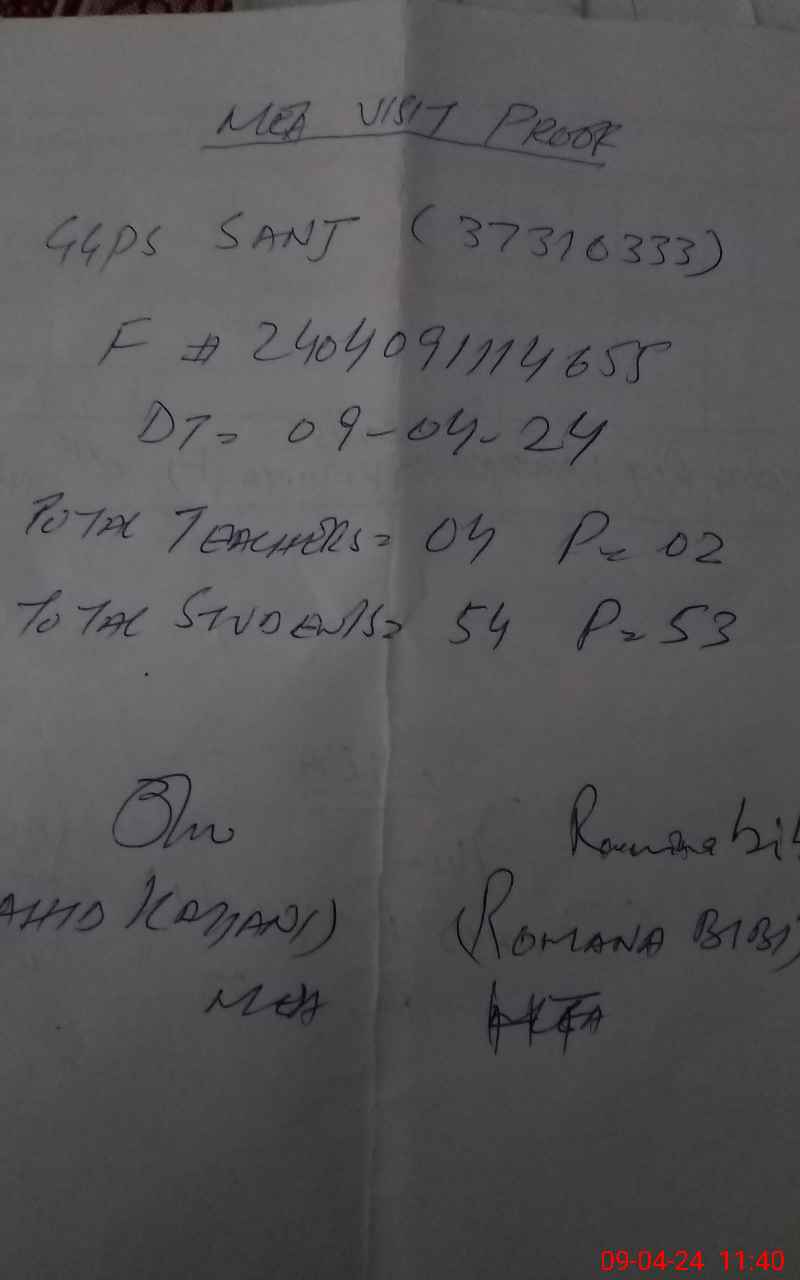 MEA VISIT PROOF
GGPS SANJ (37310333)
F # 2404091114655
DT= 09-04-24
TOTAL TEACHERS= 04 P= 02
TOTAL STUDENTS= 54 P= 53
Romana bib
KAZZANI) (ROMANA BIBI)
MEA
09-04-24 11:40